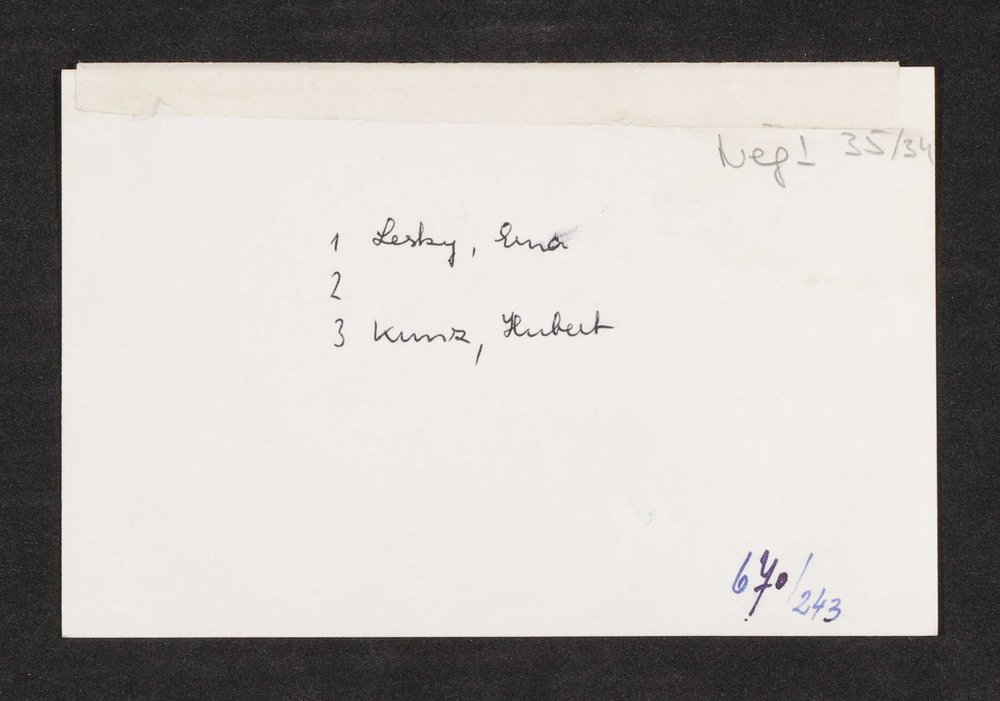 Neg! 35/34
1 Lesky, Erna
2
3 Kunz, Hubert
670/243